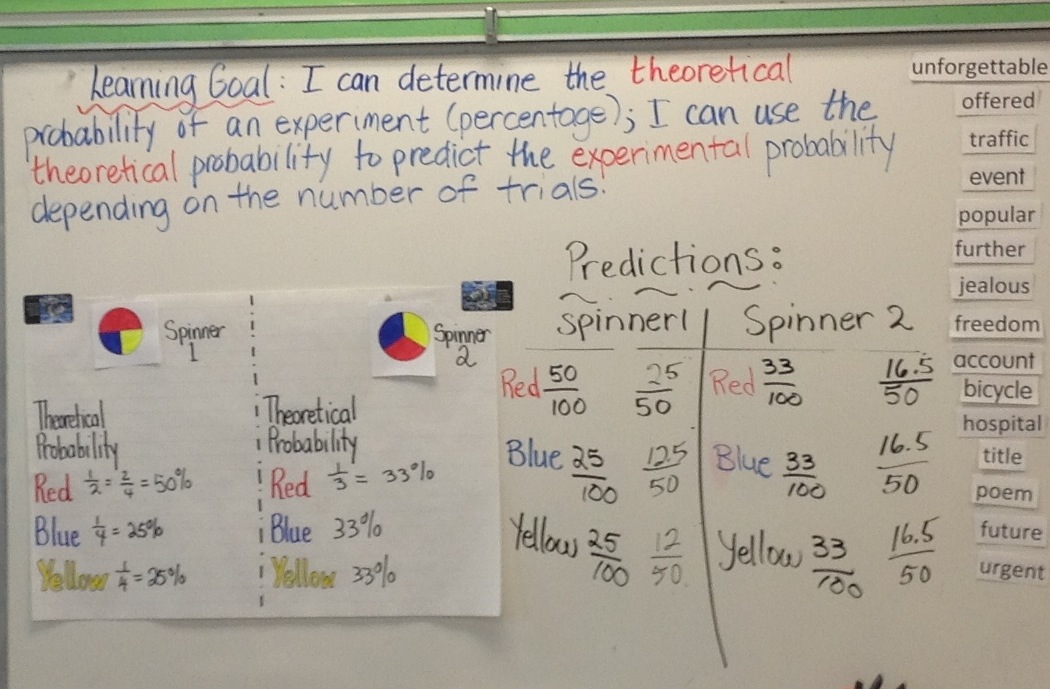 Learning Goal: I can determine the theoretical
probability of an experiment (percentage); I can use the
theoretical probability to predict the experimental probability
depending on the number of trials.
Spinner 1
Theoretical
Probability
Red 1/2 = 2/4 = 50%
Blue 1/4 = 25%
Yellow 1/4 = 25%
Spinner 2
Theoretical
Probability
Red 1/3 = 33%
Blue 33%
Yellow 33%
Predictions:
Spinner 1
Red 50/100 25/50
Blue 25/100 12.5/50
Yellow 25/100 12/50
Spinner 2
Red 33/100 16.5/50
Blue 33/100 16.5/50
Yellow 33/100 16.5/50
unforgettable
offered
traffic
event
popular
further
jealous
freedom
account
bicycle
hospital
title
poem
future
urgent